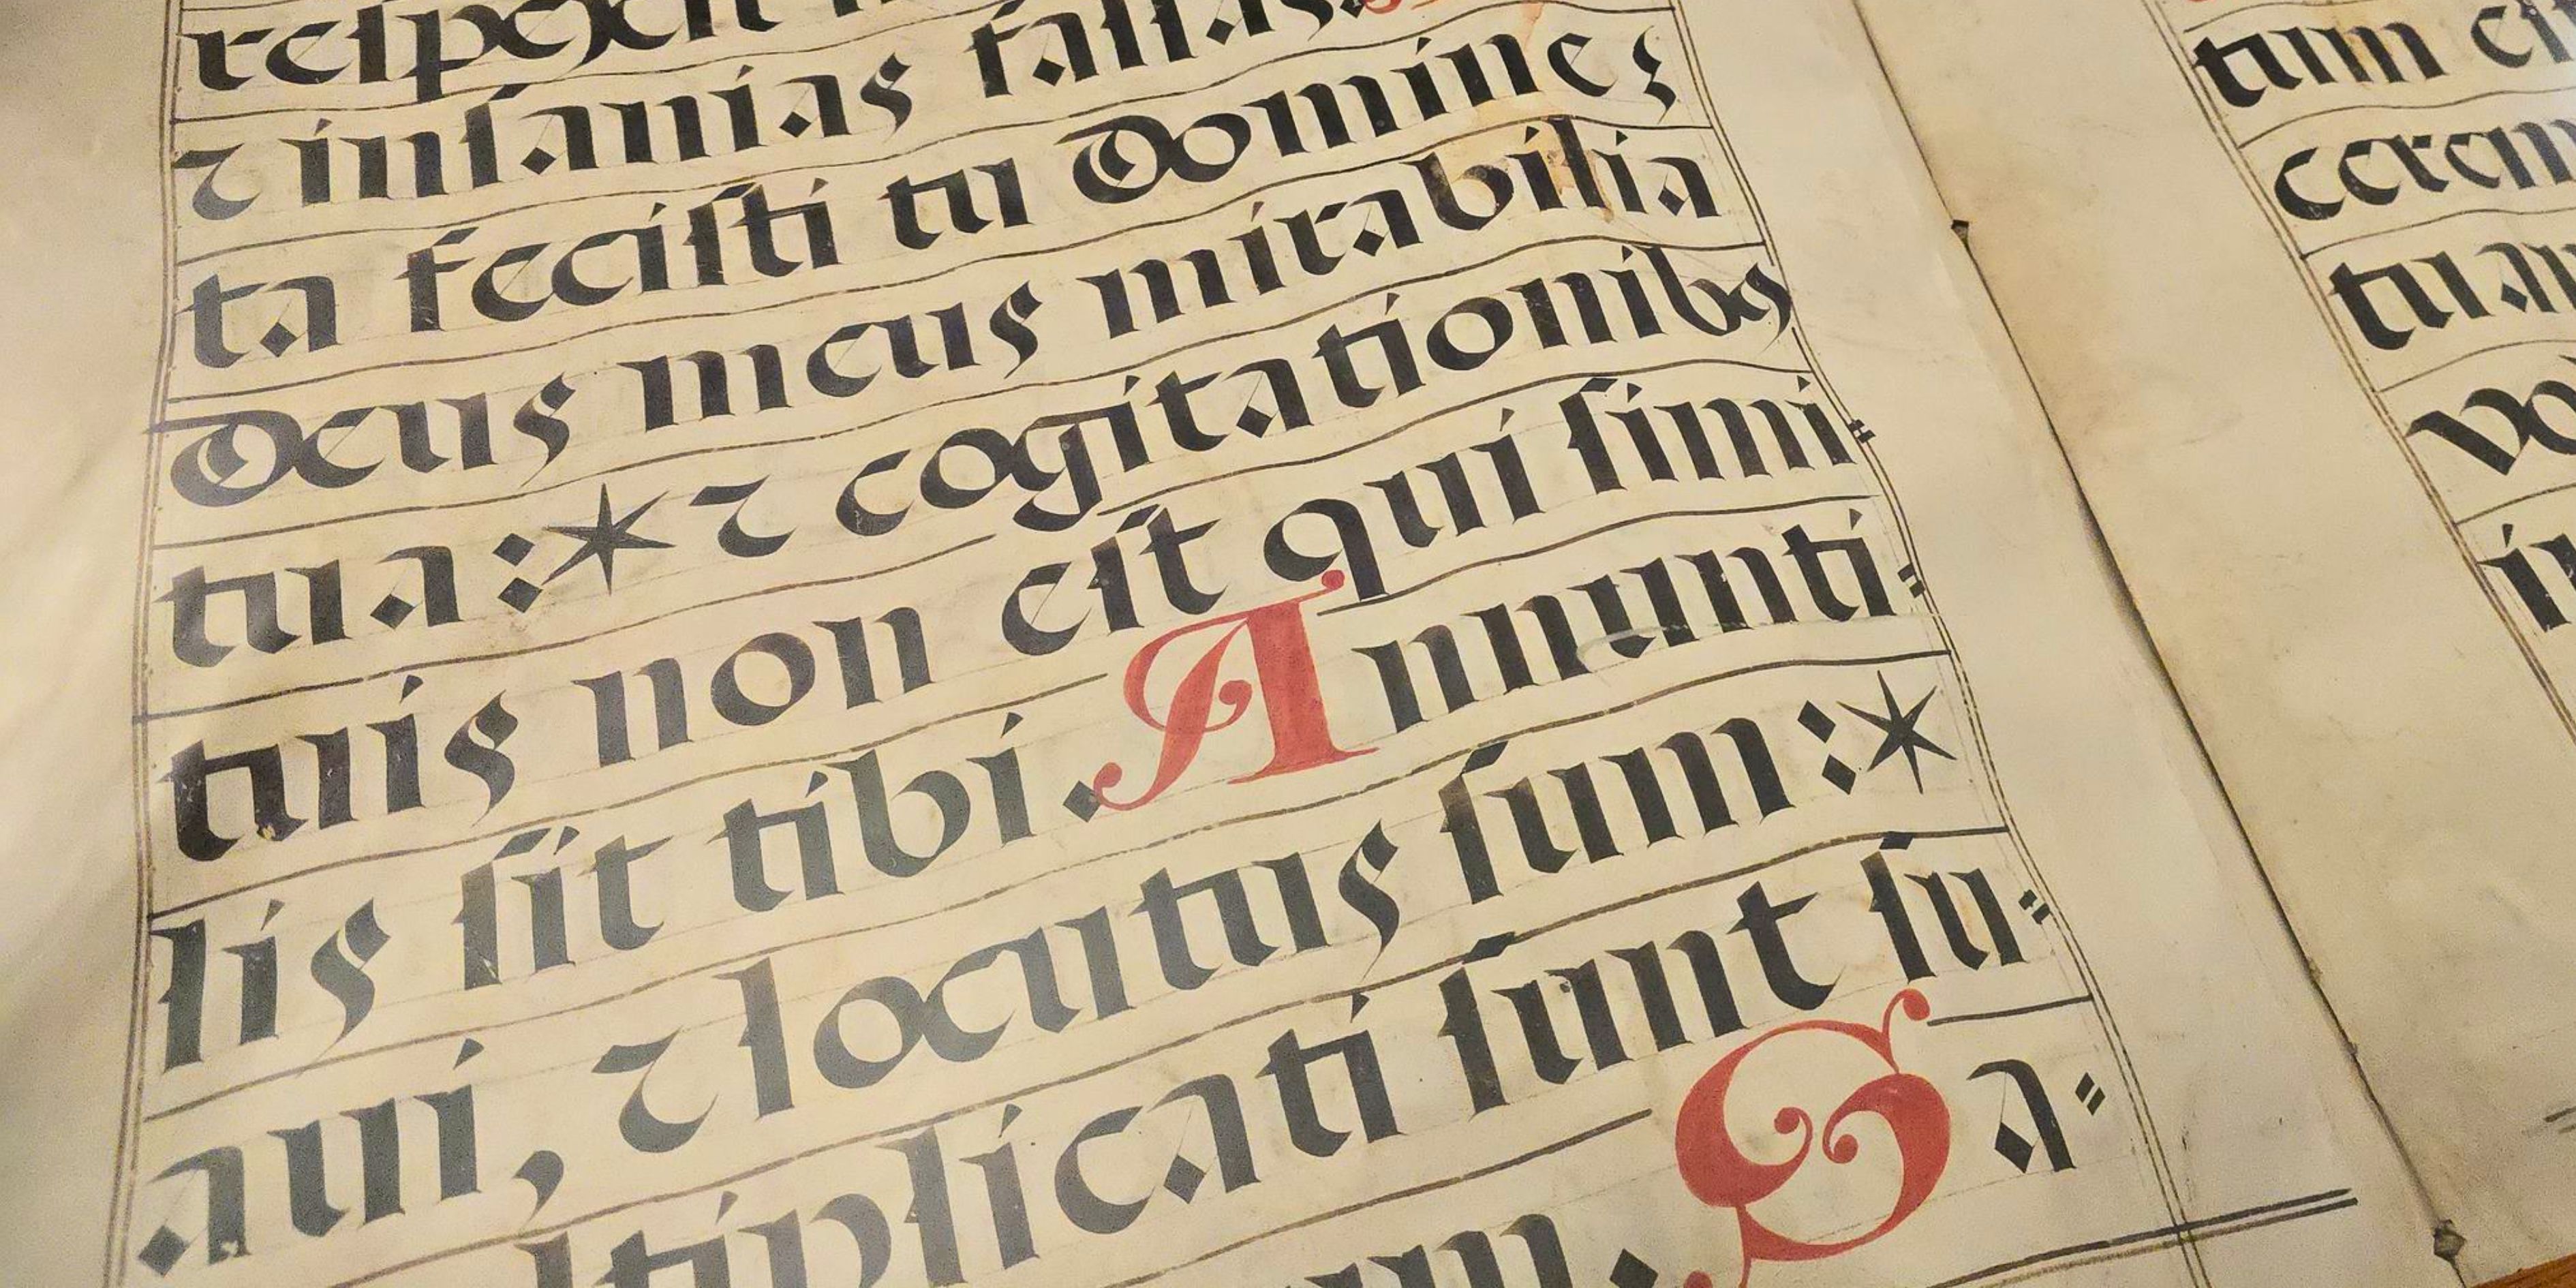 respexit
⁊ insanias falsas.
ta fecisti tu Domine
Deus meus mirabilia
tua:* ⁊ cogitationibꝰ
tuis non est qui simi⸗
lis sit tibi. Annunti⸗
aui, ⁊ locutus sum:*
ltiplicati sunt su⸗
um. Sa⸗
tum